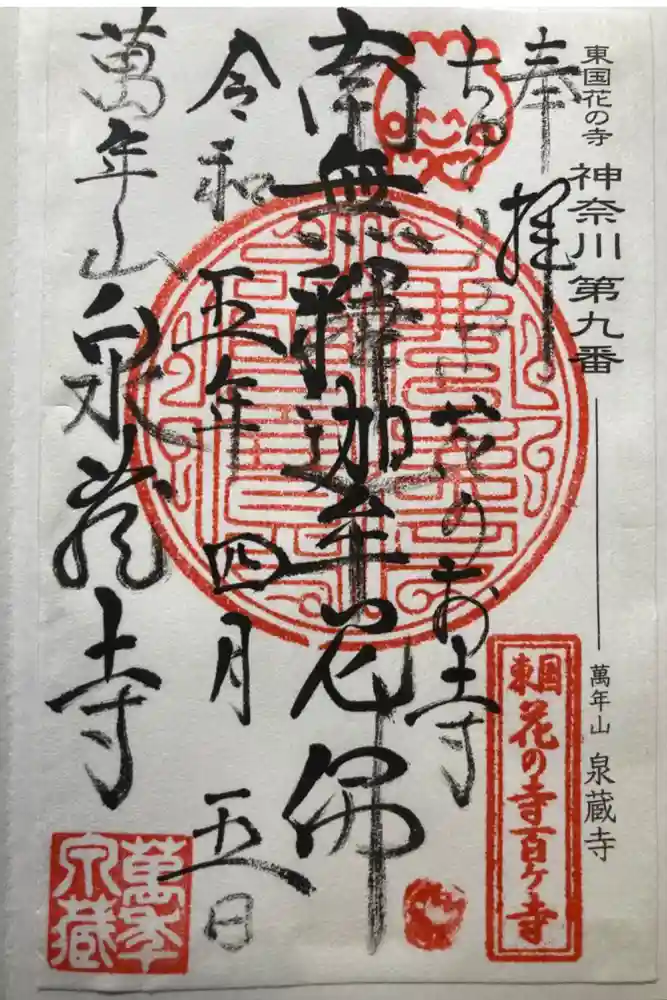 東国花の寺 神奈川第九番 萬年山 泉蔵寺
奉拝
ちゅーりっぷ花のお寺
南無釋迦牟尼佛
令和五年四月五日
萬年山泉蔵寺
東国
花の寺百ヶ寺
萬年
泉蔵